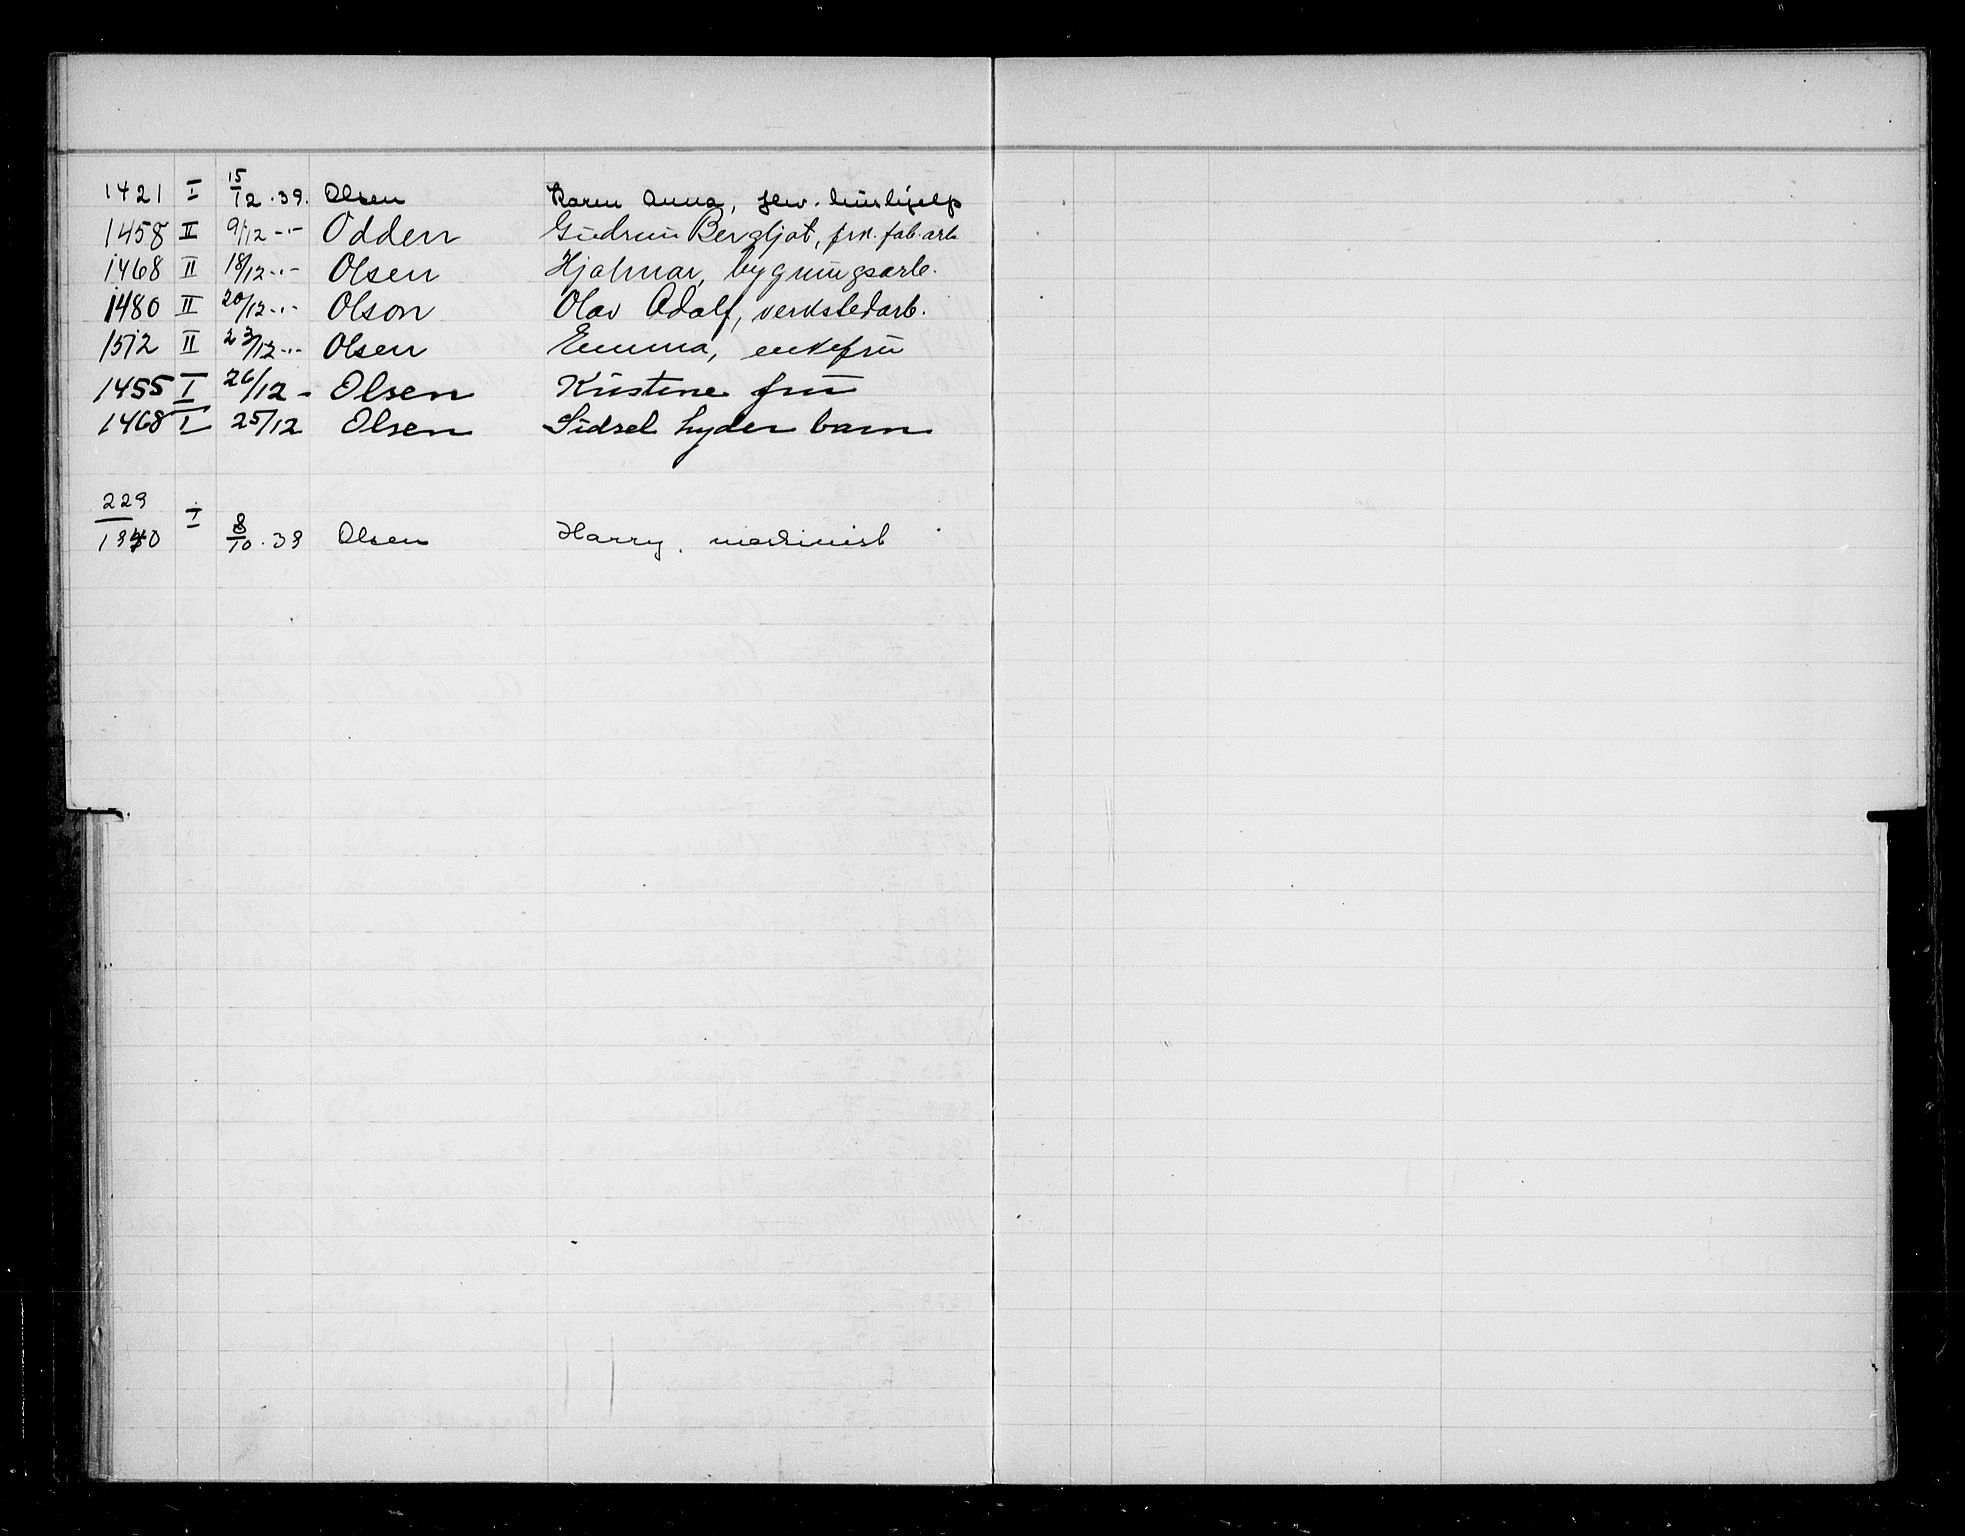 1421 I 15/12.39. Olsen Karen Anna, hushjelp
1458 II 9/12 -"- Odden Gudrun Bergljot, frk. fab.arb
1468 II 18/12 -"- Olsen Hjalmar, bygningsarb.
1480 II 20/12 -"- Olson Olav Adolf, verkstedarb.
1512 II 23/12 -"- Olsen Emma, enkefru
1455 I 26/12 - Olsen Kristine fru
1468 I 25/12 Olsen Sidsel Lyder barn
229/1940 I 8/10.39 Olsen Harry, maskinist